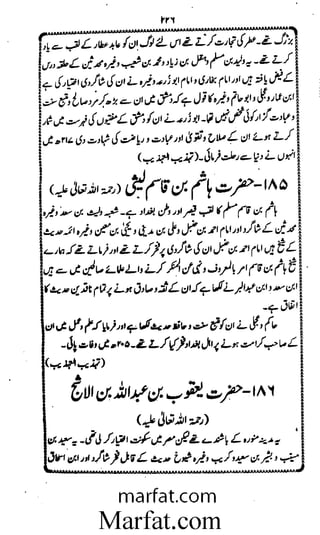 ۲۲۶
بزرگ تھے۔ عطر کی تجارت کرتے تھے اس لئے لوگ ان کو عابد عطار کے لقب سے یاد
کرتے تھے۔ یہ ولید بن مسلم و بقل بن زیاد و محمد بن شعیب وغیرہ محدثین کے حلقہ درس
کے فیض یافتہ ہیں اور امام بخاری و امام ابو زرعہ وغیرہ نے ان کی شاگردی اختیار کی ہے
ابن عمار و عجلی و ابو حاتم وغیرہ کا قول ہے کہ دمشق میں ان سے بڑھ کر مرد صالح و متبع سنت
و عبادت گزار کوئی شخص نہیں تھا۔ ابو زرعہ نے ان کو دمشق کے مفتیوں کی فہرست میں شمار
کرتے ہوئے ان کے صلاح و تقویٰ اور عبادت و ریاضت کی شہادت دی ہے
انہوں نے دنیا سے رحلت فرمائی۔ (تہذیب التہذیب)
۱۸۵- حضرت ہاشم بن قاسم لیثی (رحمۃ اللہ تعالیٰ علیہ)
ہاشم بن قاسم مسلم کا لقب قیصر اور وطن بغداد ہے۔ شعبہ و لیث بن سعد وغیرہ
محدثین کے شاگرد اور امام احمد بن حنبل و علی بن مدینی و یحییٰ بن معین وغیرہ ائمہ حدیث
کے شیخ ہیں امام احمد بن حنبل ان کی شاگردی پر فخر کرتے تھے اور فرماتے تھے کہ ہمارے
شیخ ہاشم بن قاسم امر بالمعروف و نہی عن المنکر کرنے والے علمائے صالحین میں سے ہیں
ابن سعد و ابن عبدالبر نے لکھا ہے کہ ان کے ثقہ و صادق ہونے پر تمام ناقدین حدیث کا
اتفاق ہے۔
حاکم و عجلی نے ان کو متبع سنت و حافظ حدیث لکھا ہے اور فرمایا کہ علم و عمل میں ان
کے صاحب کرامت ہونے پر اہل بغداد فخر کیا کرتے تھے۔ ۲۰۵ھ میں وفات پائی۔
(تہذیب التہذیب)
۱۸۶- حضرت یعقوب بن عبداللہ بن الاشج
(رحمۃ اللہ تعالیٰ علیہ)
یہ مدینہ منورہ کے باشندے تھے لیکن مصر میں سکونت اختیار کر لی تھی۔ یہ سعید بن
مسیب و بشیر بن سعید و کریب وغیرہ شیوخ حدیث کے قابل فخر شاگرد اور ابن اسحاق
marfat.com
Marfat.com